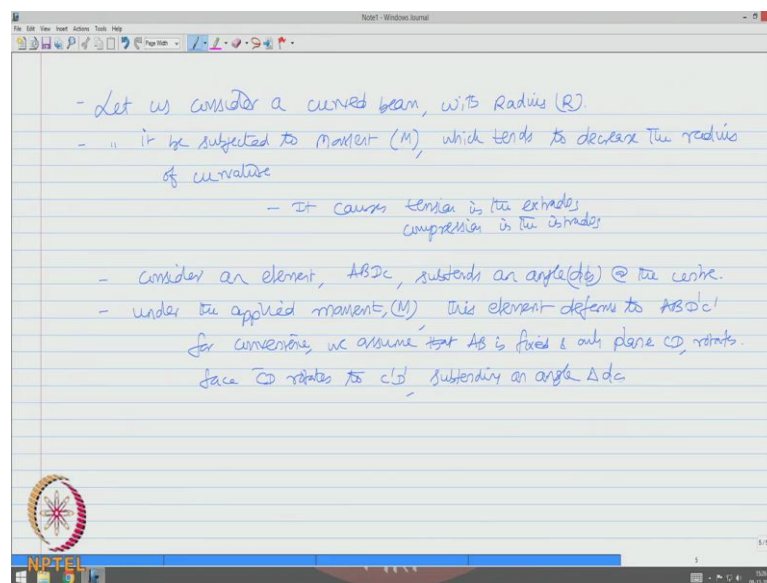 Note1 - Windows Journal
File Edit View Insert Actions Tools Help
Page Width
- Let us consider a curved beam, with Radius (R).
- " it be subjected to moment (M), which tends to decrease the radius
of curvature
- It causes tension in the extrados
compression in the intrados
- consider an element, ABDC, subtends an angle (dφ) @ the centre.
- under the applied moment, (M), this element deforms to ABD'C'
for convenience, we assume that AB is fixed & only plane CD, rotates.
face CD rotates to C'D', subtending an angle Δdα
NPTEL